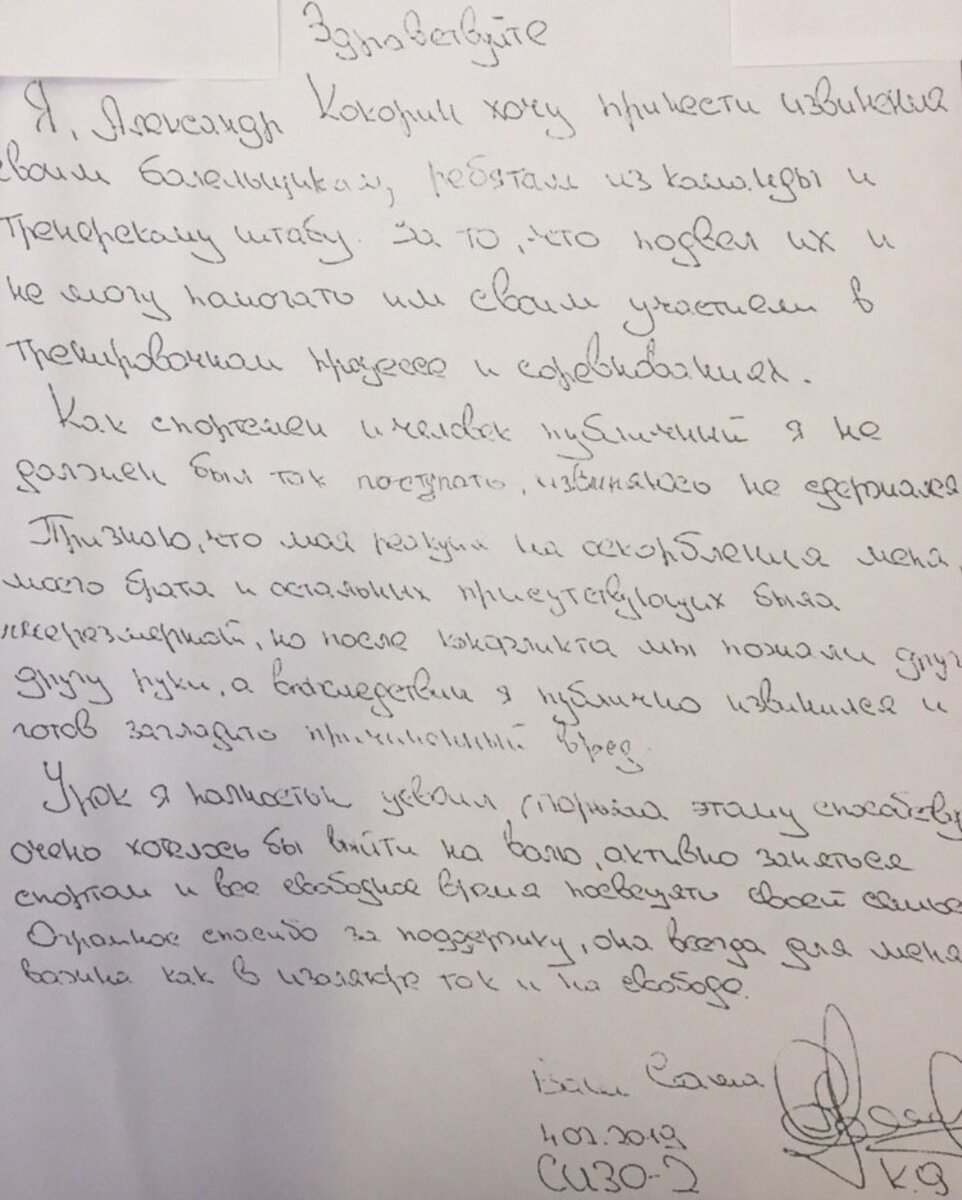 Здравствуйте
Я, Александр Кокорин хочу принести извинения
своим болельщикам, ребятам из команды и
тренерскому штабу. За то, что подвел их и
не могу помогать им своим участием в
тренировочном процессе и соревнованиях.
Как спортсмен и человек публичный я не
должен был так поступать, извиняюсь не сдержался
Признаю, что моя реакция на оскорбления меня,
моего брата и остальных присутствующих была
несоразмерной, но после конфликта мы пожали друг
другу руки, а впоследствии я публично извинился и
готов загладить причиненный вред.
Урок я полностью усвоил, тюрьма этому способству
очень хотелось бы выйти на волю, активно заняться
спортом и все свободное время посвещять своей семье
Огромное спасибо за поддержку, она всегда для меня
важна как в изоляторе так и на свободе.
Ваш Саша
4.02.2019
СИЗО-2 К.О